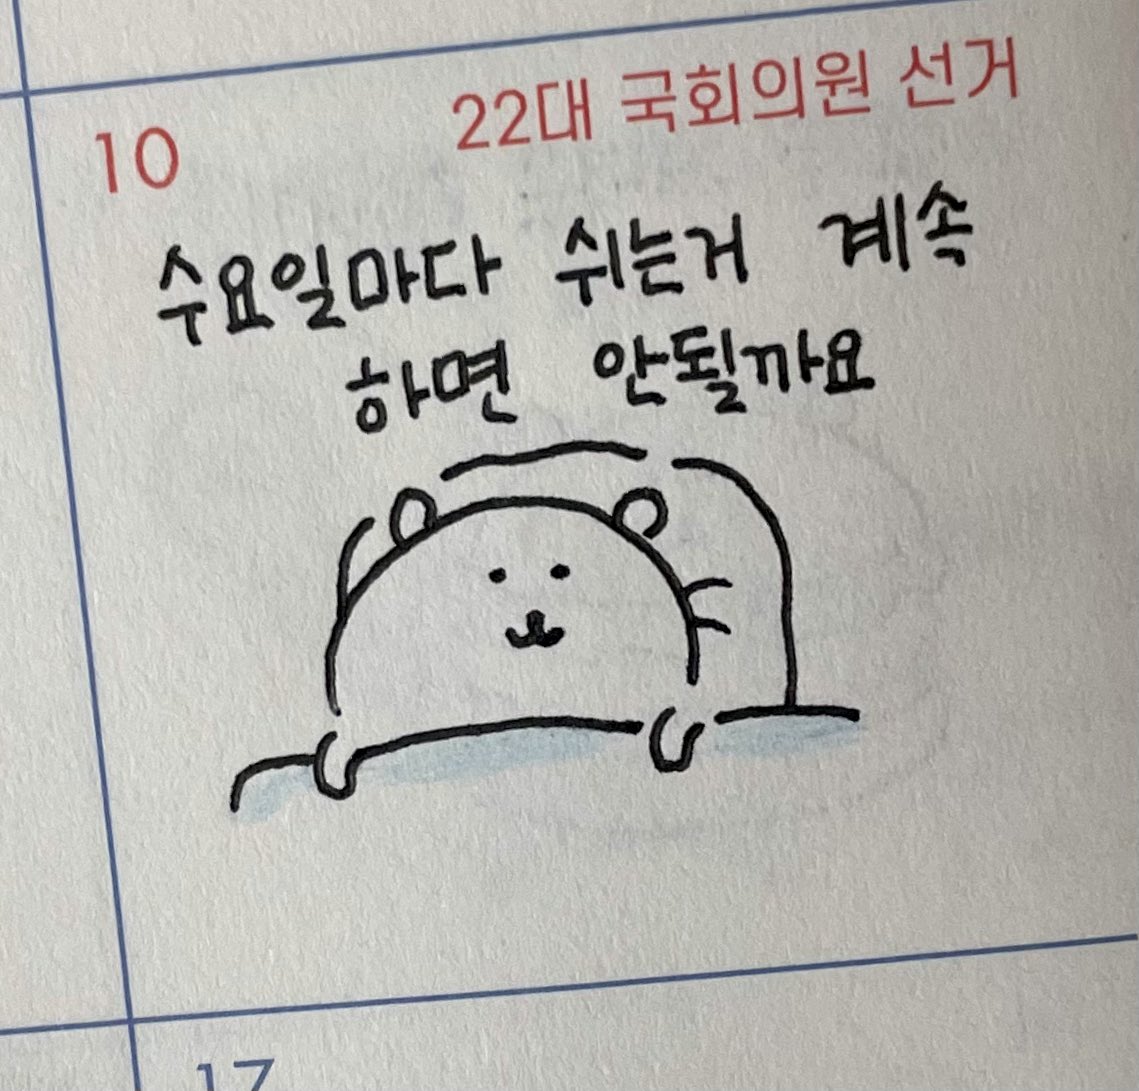 10 22대 국회의원 선거
수요일마다 쉬는거 계속
하면 안될까요
17